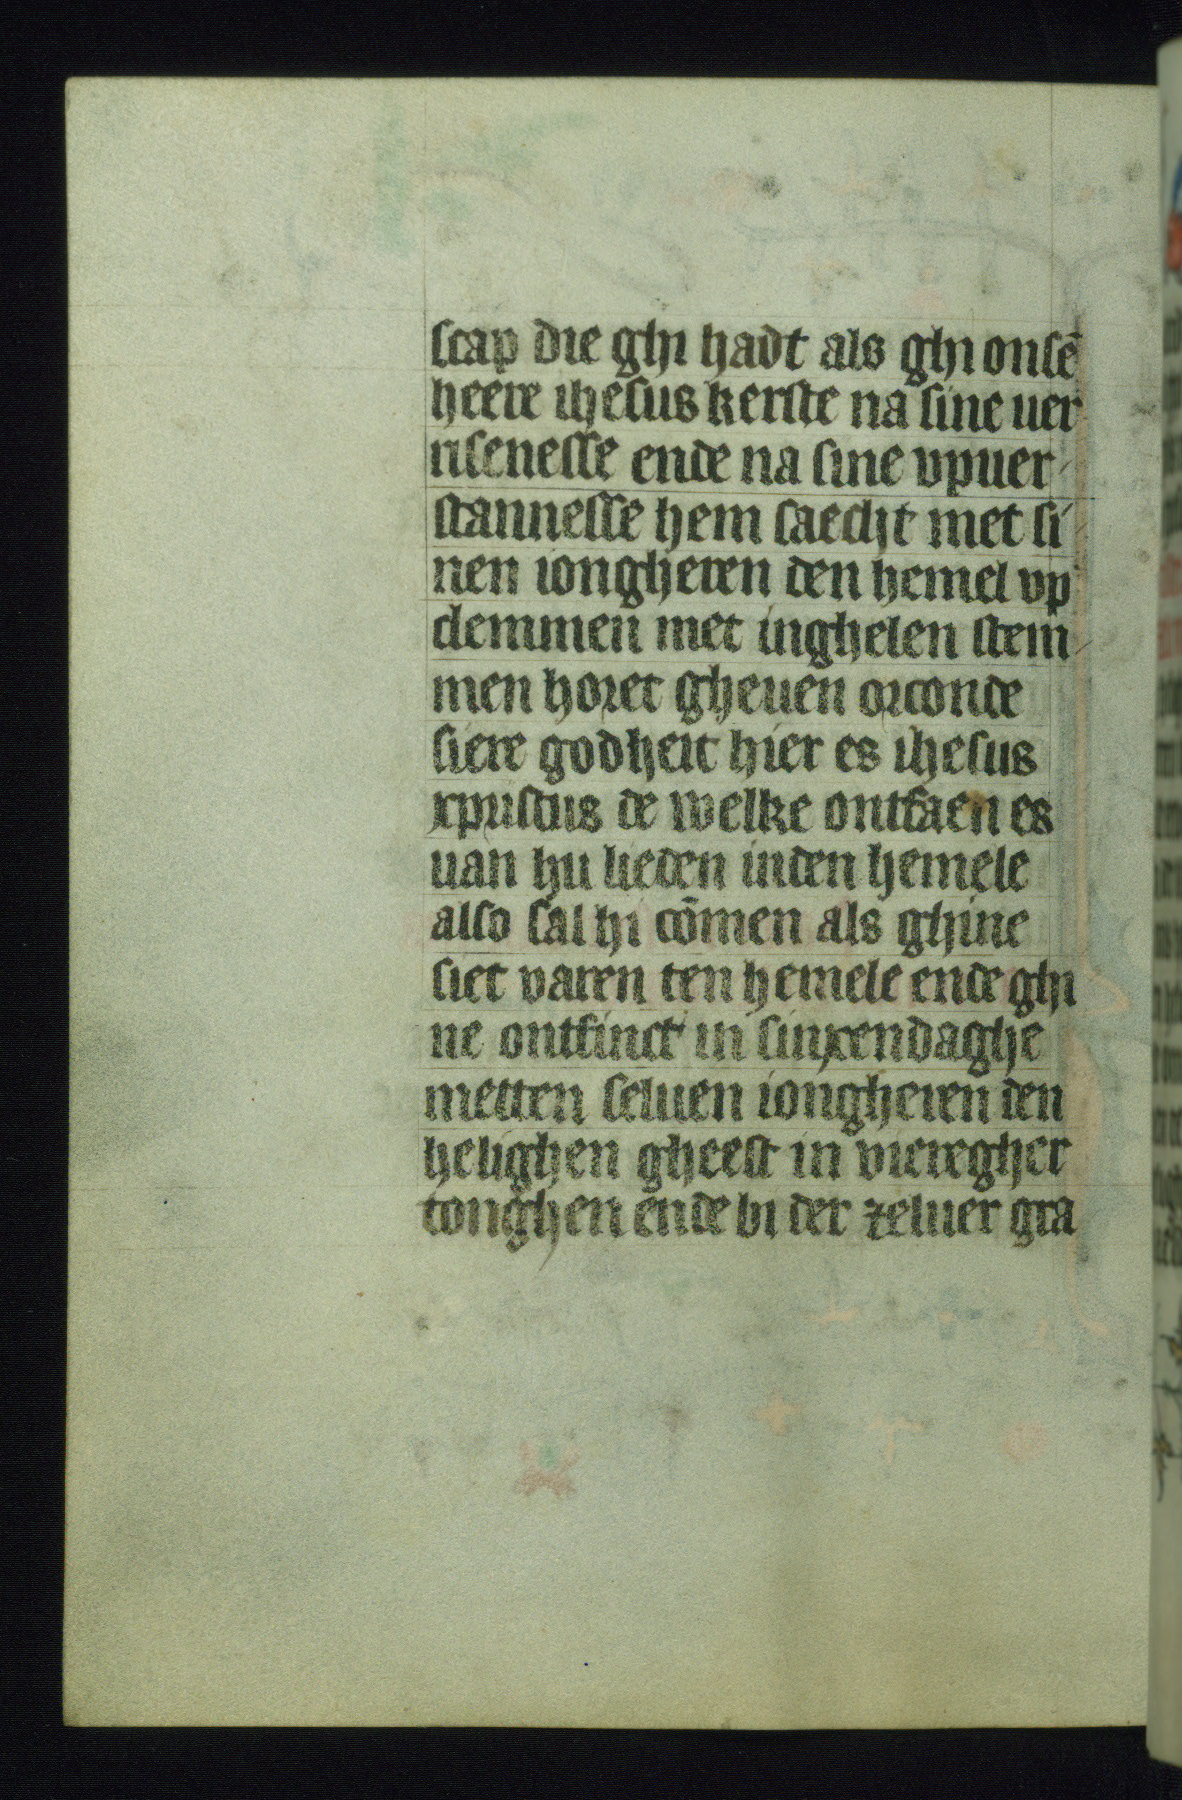 scap die ghi hadt als ghi onsē
heere ihesus kerste na sine uer
risenesse ende na sine vpuer
stannesse hem saecht met si
nen iongheren den hemel vp
clemmen met inghelen stem
men horet gheuen orconde
siere godheit hier es ihesus
xpristus de welke ontfaen es
uan hu lieden inden hemele
also sal hi cōmen als ghine
siet varen ten hemele ende ghi
ne ontfinct in sinxendaghe
metten seluen iongheren den
helighen gheest in viereghet
tonghen ende bi der zeluer gra